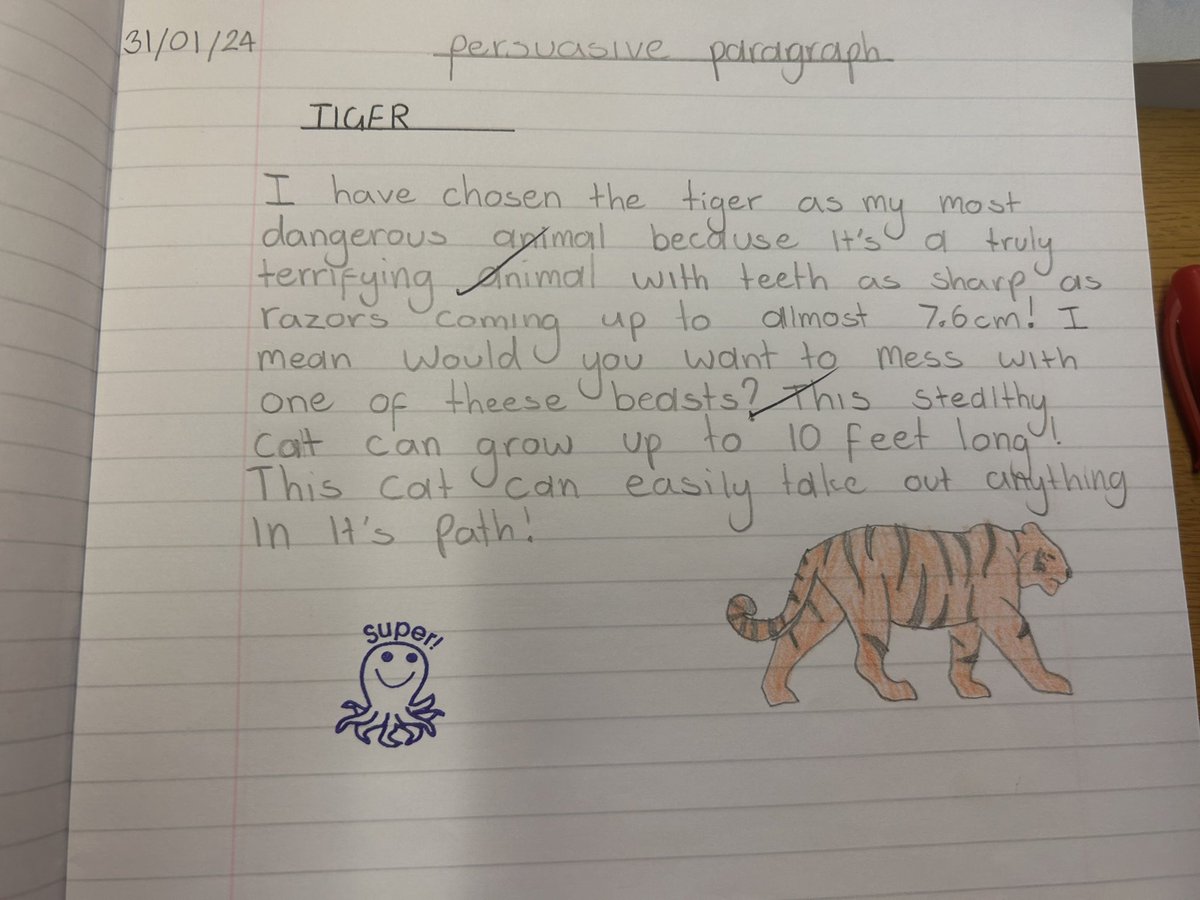 31/01/24
persuasive paragraph
TIGER
I have chosen the tiger as my most
dangerous animal because it's a truly
terrifying animal with teeth as sharp as
razors coming up to almost 7.6cm! I
mean would you want to mess with
one of theese beasts? This stealthy
cat can grow up to 10 feet long!
This cat can easily take out anything
in it's path!
super!